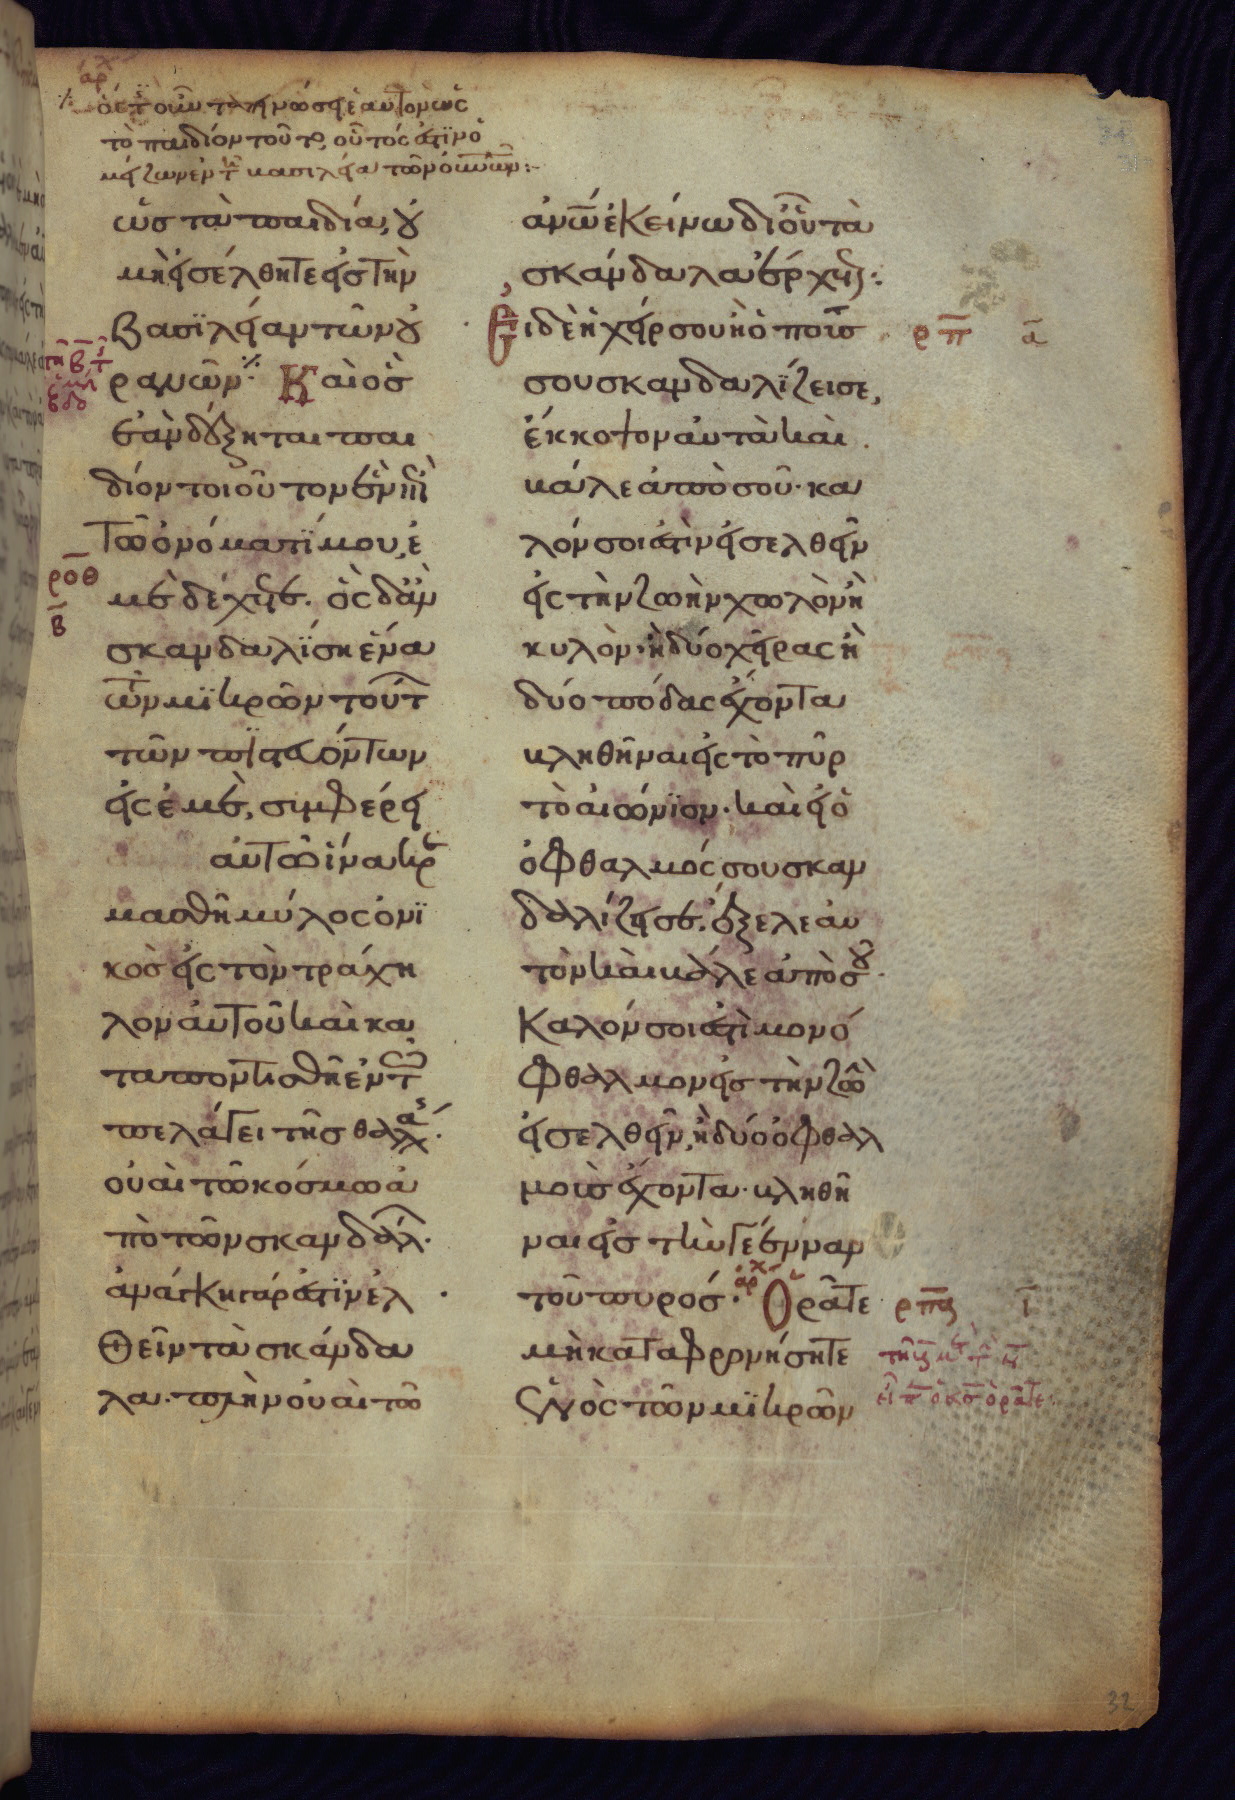 ὅστις οὖν ταπηνώσῃ ἑαυτὸν ὡς
τὸ παιδίον τοῦτο, οὗτός ἐστϊν ὁ
μείζων ἐν τῇ βασιλεία τῶν οὐνῶν:
ὡς τὰ παιδία, οὐ
μὴ εἰσέλθητε εἰς τὴν
βασϊλείαν τῶν οὐ
ρανῶν·̇ Καὶ ὃς
ἐὰν δέξηται παι
δίον τοιοῦτον ἓν ἐπὶ
τῶ ὀνόματί μου, ἐ
μὲ δέχεται. ὃς δ' ἂν
σκανδαλΐση ἕνα
τῶν μϊκρῶν τούτ
τῶν πϊστευόντων
εἰς ἐμὲ, σιμφέρει
αὐτῶ ἵνα κρε
μασθῆ μύλος ὀνϊ
κὸσ εἰς τὸν τράχη
λον αὐτοῦ καὶ κα
ταποντισθῆ ἐν τῶ
πελάγει τῆς θαλάσ·
οὐαὶ τῶ κόσμω ἀ
πὸ τῶν σκανδάλ·
ἀνάγκη γάρ ἐστϊν ἐλ
θεῖν τὰ σκάνδα
λα· πλὴν οὐαὶ τῶ
ἀνῶ ἐκείνω δι' οὗ τὰ
σκάνδαλα ἔρχεται:
Εἰ δὲ ἡ χείρ σου ἢ ὁ ποῦσ
σου σκανδαλΐζει σε,
ἔκκοψον αὐτὰ καὶ
βάλε ἀπὸ σοῦ· κα
λόν σοι ἐστὶν εἰσελθεῖν
εἰς τὴν ζωὴν χωλὸν ἢ
κυλὸν· ἢ δύο χεῖρας ἢ
δύο πόδας ἔχοντα
βληθῆναι εἰς τὸ πῦρ
τὸ αἰώνϊον· καὶ εἰ ὁ
ὀφθαλμός σου σκαν
δαλίζει σε. ἔξελε αὐ
τὸν καὶ βάλε ἀπὸ σοῦ·
Καλόν σοι ἐστὶ μονό
φθαλμον εἰσ τὴν ζωὴ
εἰσελθεῖν, ἢ δύο ὀφθαλ
μοὺσ ἔχοντα· βληθῆ
ναι εἰσ τὴν γέενναν
τοῦ πυρόσ· Ὁρᾶτε
μὴ καταφρρνήσητε
ἑνὸς τῶν μϊκρῶν
ροθ
β
ρπ α
ρπα ι
32